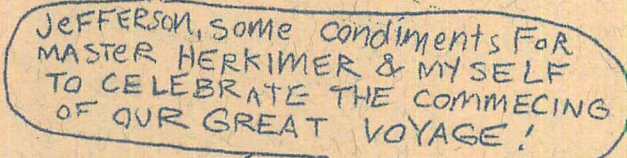 JEFFERSON, SOME CONDIMENTS FOR
MASTER HERKIMER & MYSELF
TO CELEBRATE THE COMMECING
OF OUR GREAT VOYAGE!